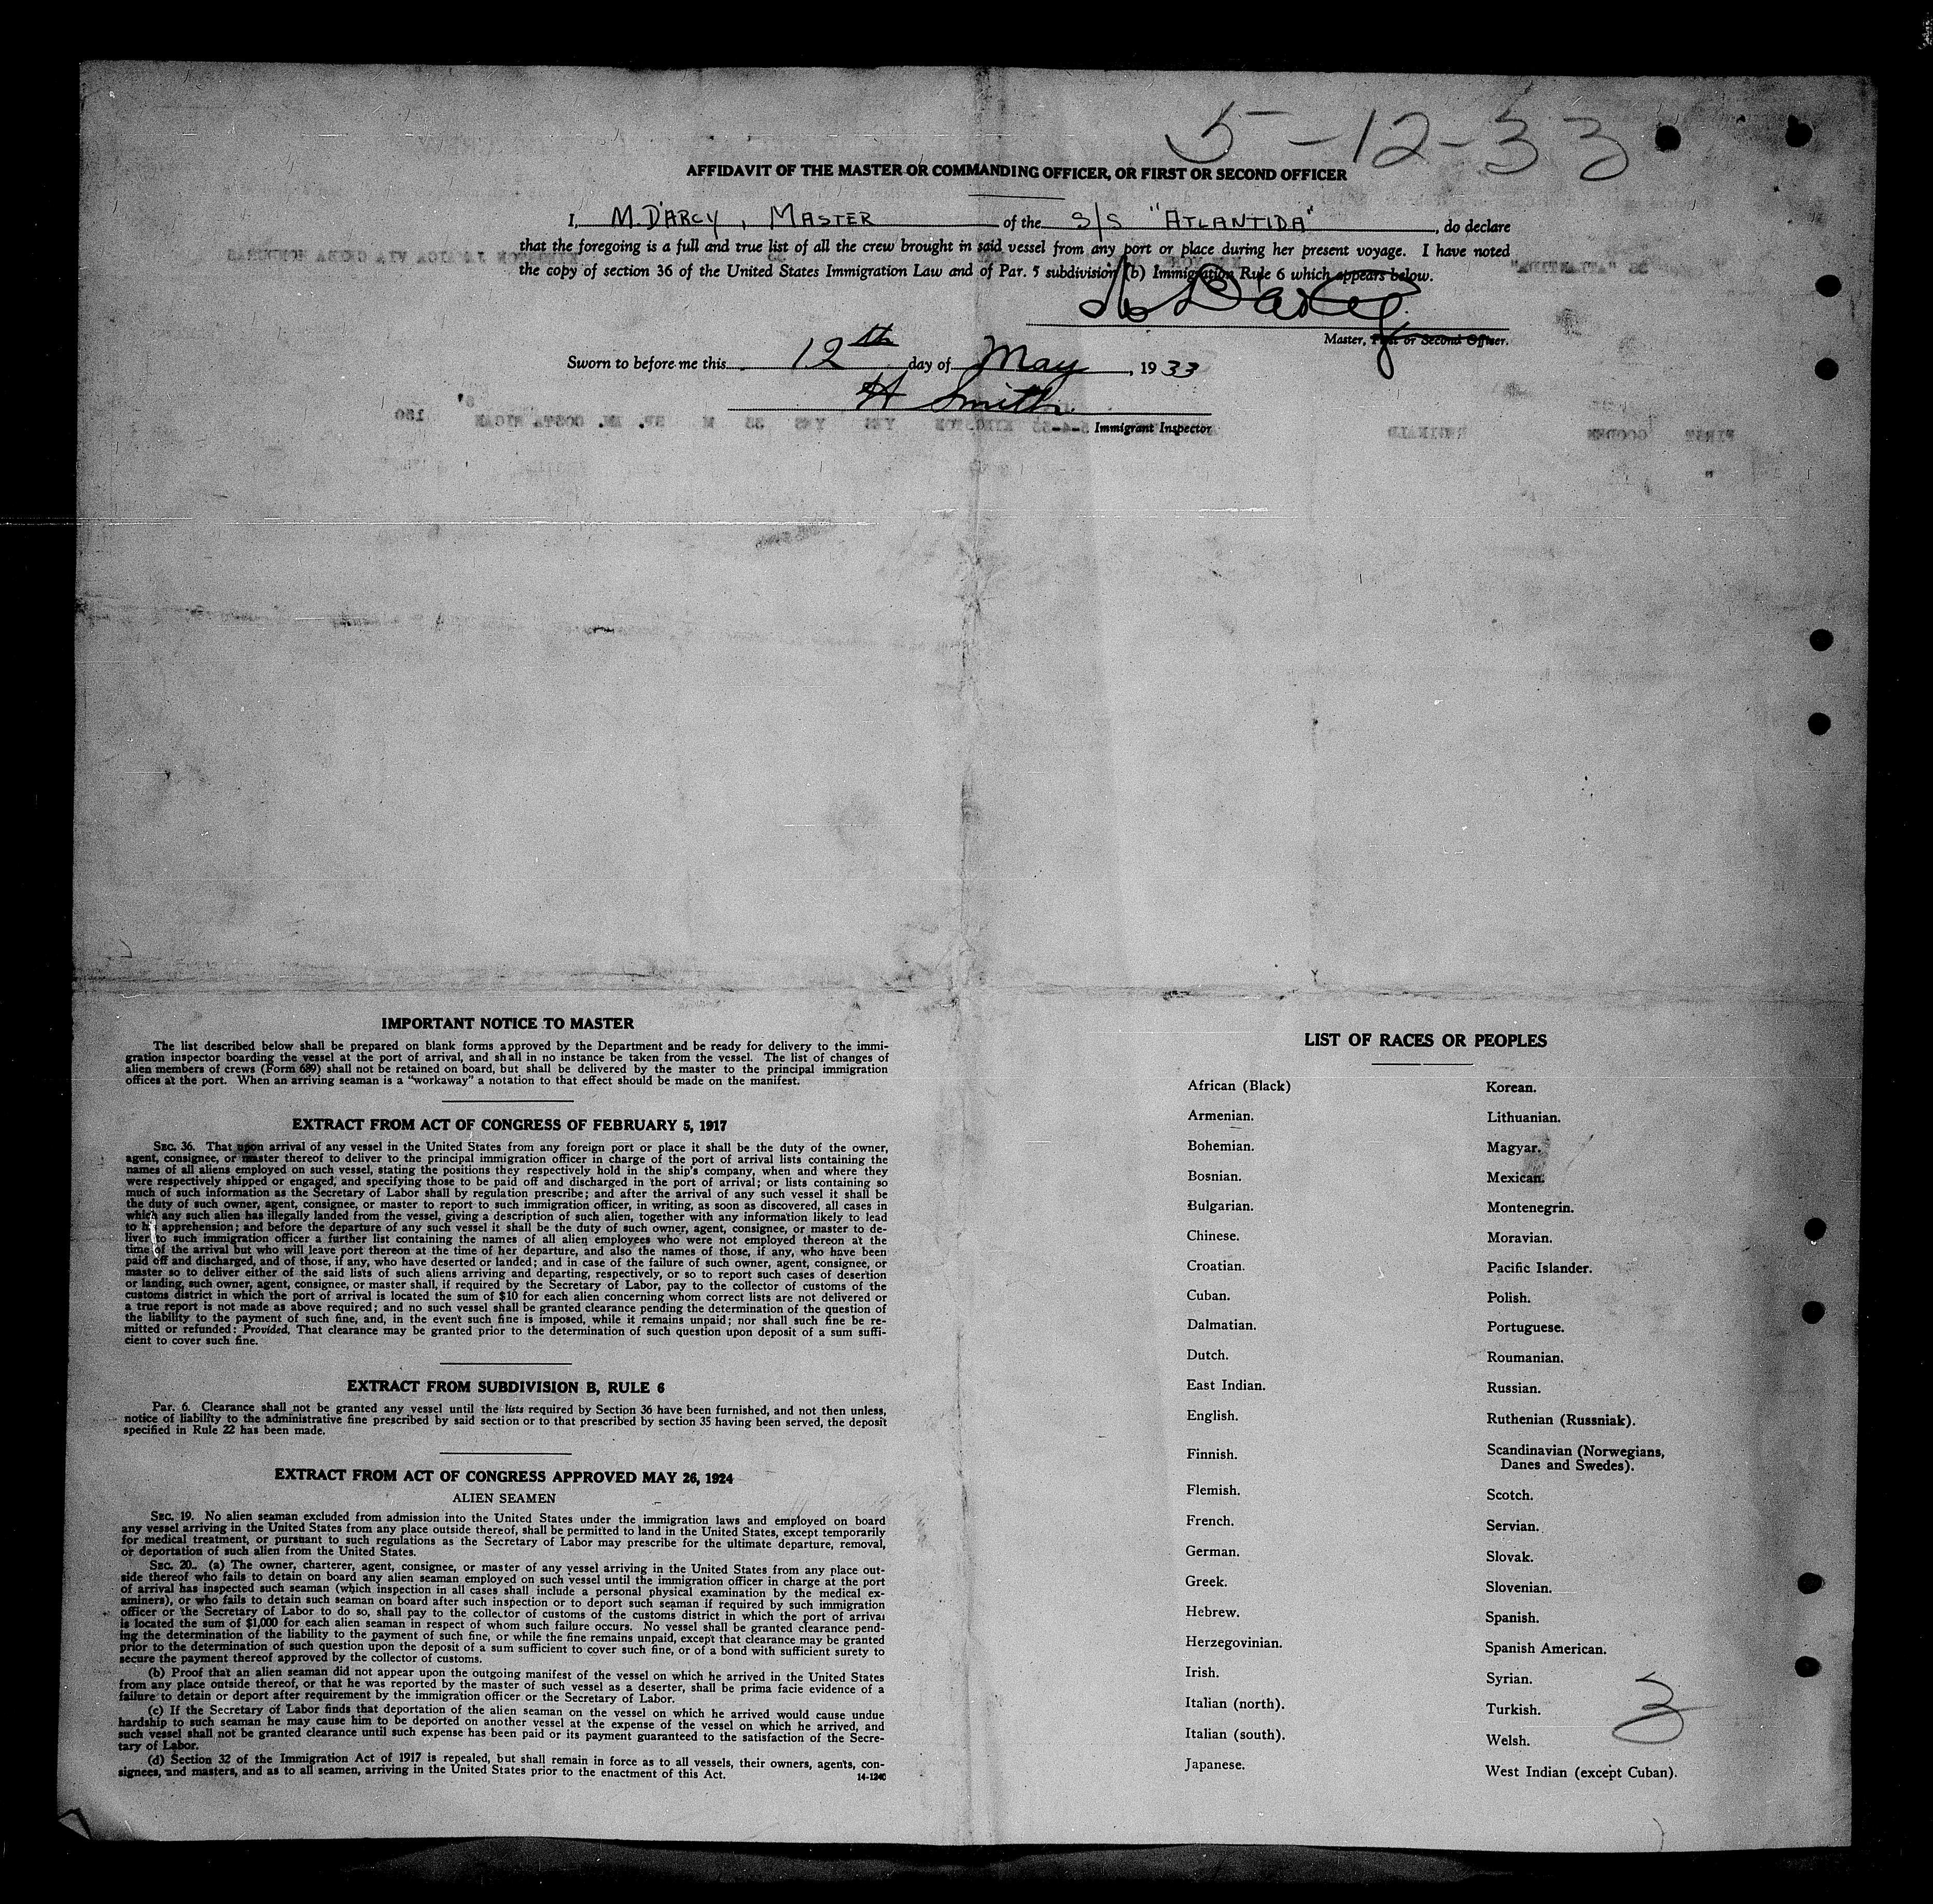 5-12-33
AFFIDAVIT OF THE MASTER OR COMMANDING OFFICER, OR FIRST OR SECOND OFFICER
I, M. D'ARCY, MASTER of the S/S "ATLANTIDA", do declare
that the foregoing is a full and true list of all the crew brought in said vessel from any port or place during her present voyage. I have noted
the copy of section 36 of the United States Immigration Law and of Par. 5 subdivision (b) Immigration Rule 6 which appears below.
M D'Arcy
Master, First or Second Officer.
Sworn to before me this 12th day of May, 1933
H Smith
Immigrant Inspector
IMPORTANT NOTICE TO MASTER
The list described below shall be prepared on blank forms approved by the Department and be ready for delivery to the immi-
gration inspector boarding the vessel at the port of arrival, and shall in no instance be taken from the vessel. The list of changes of
alien members of crews (Form 689) shall not be retained on board, but shall be delivered by the master to the principal immigration
offices at the port. When an arriving seaman is a "workaway" a notation to that effect should be made on the manifest.
EXTRACT FROM ACT OF CONGRESS OF FEBRUARY 5, 1917
SEC. 36. That upon arrival of any vessel in the United States from any foreign port or place it shall be the duty of the owner,
agent, consignee, or master thereof to deliver to the principal immigration officer in charge of the port of arrival lists containing the
names of all aliens employed on such vessel, stating the positions they respectively hold in the ship's company, when and where they
were respectively shipped or engaged, and specifying those to be paid off and discharged in the port of arrival; or lists containing so
much of such information as the Secretary of Labor shall by regulation prescribe; and after the arrival of any such vessel it shall be
the duty of such owner, agent, consignee, or master to report to such immigration officer, in writing, as soon as discovered, all cases in
which any such alien has illegally landed from the vessel, giving a description of such alien, together with any information likely to lead
to his apprehension; and before the departure of any such vessel it shall be the duty of such owner, agent, consignee, or master to de-
liver to such immigration officer a further list containing the names of all alien employees who were not employed thereon at the
time of the arrival but who will leave port thereon at the time of her departure, and also the names of those, if any, who have been
paid off and discharged, and of those, if any, who have deserted or landed; and in case of the failure of such owner, agent, consignee, or
master so to deliver either of the said lists of such aliens arriving and departing, respectively, or so to report such cases of desertion
or landing, such owner, agent, consignee, or master shall, if required by the Secretary of Labor, pay to the collector of customs of the
customs district in which the port of arrival is located the sum of $10 for each alien concerning whom correct lists are not delivered or
a true report is not made as above required; and no such vessel shall be granted clearance pending the determination of the question of
the liability to the payment of such fine, and, in the event such fine is imposed, while it remains unpaid; nor shall such fine be re-
mitted or refunded: Provided, That clearance may be granted prior to the determination of such question upon deposit of a sum suffi-
cient to cover such fine.
EXTRACT FROM SUBDIVISION B, RULE 6
Par. 6. Clearance shall not be granted any vessel until the lists required by Section 36 have been furnished, and not then unless,
notice of liability to the administrative fine prescribed by said section or to that prescribed by section 35 having been served, the deposit
specified in Rule 22 has been made.
EXTRACT FROM ACT OF CONGRESS APPROVED MAY 26, 1924
ALIEN SEAMEN
SEC. 19. No alien seaman excluded from admission into the United States under the immigration laws and employed on board
any vessel arriving in the United States from any place outside thereof, shall be permitted to land in the United States, except temporarily
for medical treatment, or pursuant to such regulations as the Secretary of Labor may prescribe for the ultimate departure, removal,
or deportation of such alien from the United States.
SEC. 20. (a) The owner, charterer, agent, consignee, or master of any vessel arriving in the United States from any place out-
side thereof who fails to detain on board any alien seaman employed on such vessel until the immigration officer in charge at the port
of arrival has inspected such seaman (which inspection in all cases shall include a personal physical examination by the medical ex-
aminers), or who fails to detain such seaman on board after such inspection or to deport such seaman if required by such immigration
officer or the Secretary of Labor to do so, shall pay to the collector of customs of the customs district in which the port of arrival
is located the sum of $1,000 for each alien seaman in respect of whom such failure occurs. No vessel shall be granted clearance pend-
ing the determination of the liability to the payment of such fine, or while the fine remains unpaid, except that clearance may be granted
prior to the determination of such question upon the deposit of a sum sufficient to cover such fine, or of a bond with sufficient surety to
secure the payment thereof approved by the collector of customs.
(b) Proof that an alien seaman did not appear upon the outgoing manifest of the vessel on which he arrived in the United States
from any place outside thereof, or that he was reported by the master of such vessel as a deserter, shall be prima facie evidence of a
failure to detain or deport after requirement by the immigration officer or the Secretary of Labor.
(c) If the Secretary of Labor finds that deportation of the alien seaman on the vessel on which he arrived would cause undue
hardship to such seaman he may cause him to be deported on another vessel at the expense of the vessel on which he arrived, and
such vessel shall not be granted clearance until such expense has been paid or its payment guaranteed to the satisfaction of the Secre-
tary of Labor.
(d) Section 32 of the Immigration Act of 1917 is repealed, but shall remain in force as to all vessels, their owners, agents, con-
signees, and masters, and as to all seamen, arriving in the United States prior to the enactment of this Act.
14-1240
LIST OF RACES OR PEOPLES
African (Black)
Armenian.
Bohemian.
Bosnian.
Bulgarian.
Chinese.
Croatian.
Cuban.
Dalmatian.
Dutch.
East Indian.
English.
Finnish.
Flemish.
French.
German.
Greek.
Hebrew.
Herzegovinian.
Irish.
Italian (north).
Italian (south).
Japanese.
Korean.
Lithuanian.
Magyar.
Mexican.
Montenegrin.
Moravian.
Pacific Islander.
Polish.
Portuguese.
Roumanian.
Russian.
Ruthenian (Russniak).
Scandinavian (Norwegians,
Danes and Swedes).
Scotch.
Servian.
Slovak.
Slovenian.
Spanish.
Spanish American.
Syrian.
Turkish.
Welsh.
West Indian (except Cuban).
3